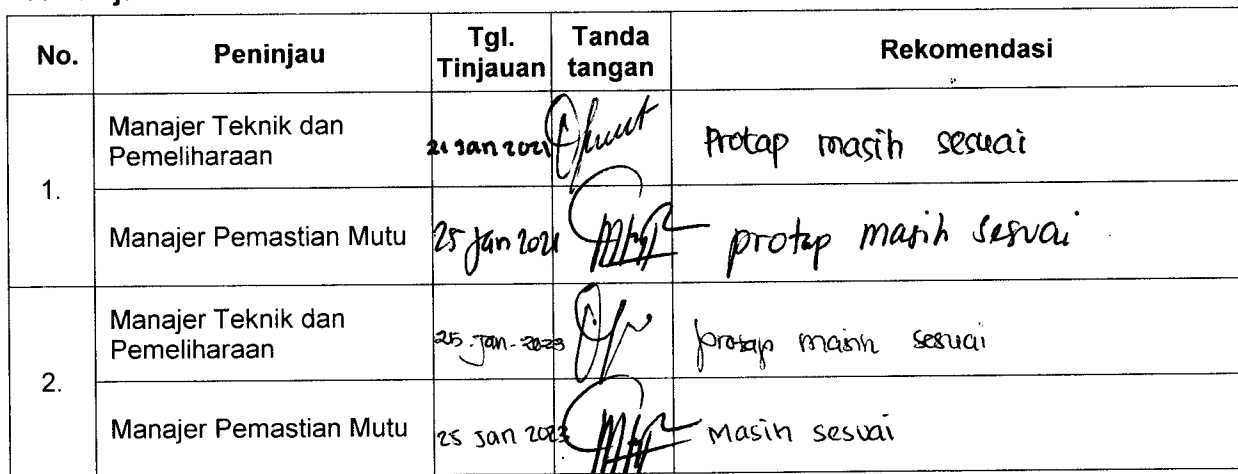 No. Peninjau Tgl. Tinjauan Tanda tangan Rekomendasi
1.
Manajer Teknik dan Pemeliharaan 21 Jan 2021 Protap masih sesuai
Manajer Pemastian Mutu 25 Jan 2021 protap masih sesuai
2.
Manajer Teknik dan Pemeliharaan 25-Jan-2023 protap masih sesuai
Manajer Pemastian Mutu 25 Jan 2023 Masih sesuai